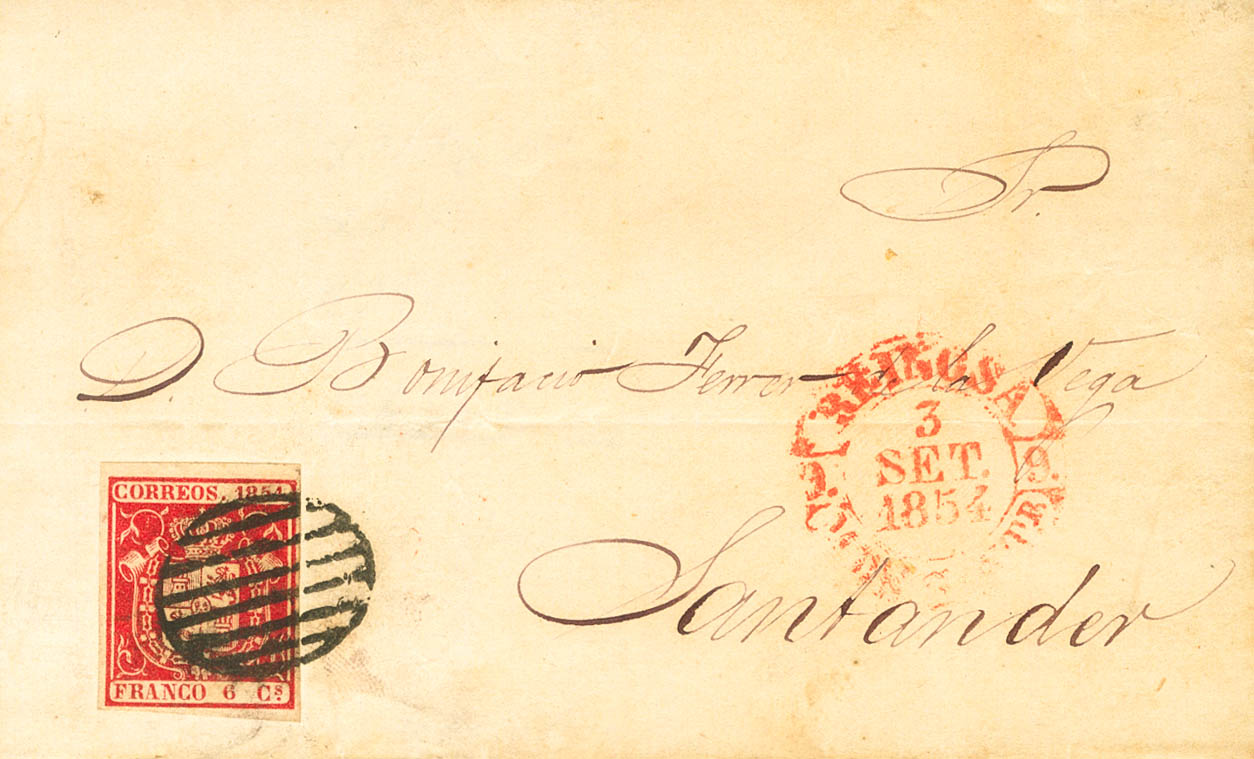 Sr.
D. Bonifacio Ferrer de la Vega
REINOSA
3
SET.
1854
Santander
CORREOS. 1854
FRANCO 6 Cs.